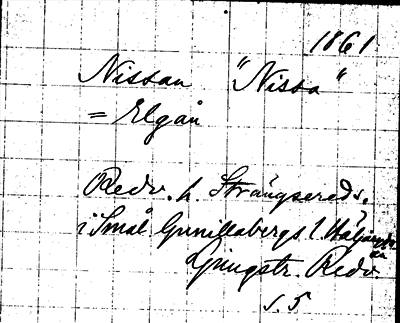 1861
Nissan "Nissa"
= Elgån
Redv. h. Strängsereds.
i Smål. Gunillabergs l.
Ljungstr. Redv.
s. 5